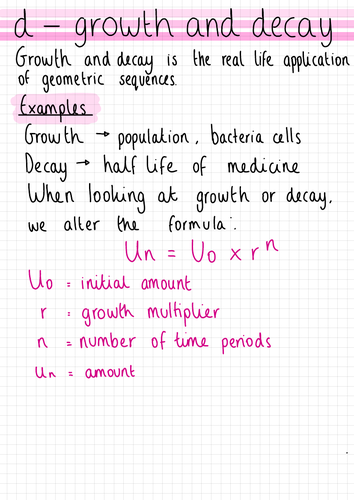 d – growth and decay
Growth and decay is the real life application
of geometric sequences.
Examples
Growth → population, bacteria cells
Decay → half life of medicine
When looking at growth or decay,
we alter the formula:
Un = U0 × r^n
U0 = initial amount
r = growth multiplier
n = number of time periods
Un = amount